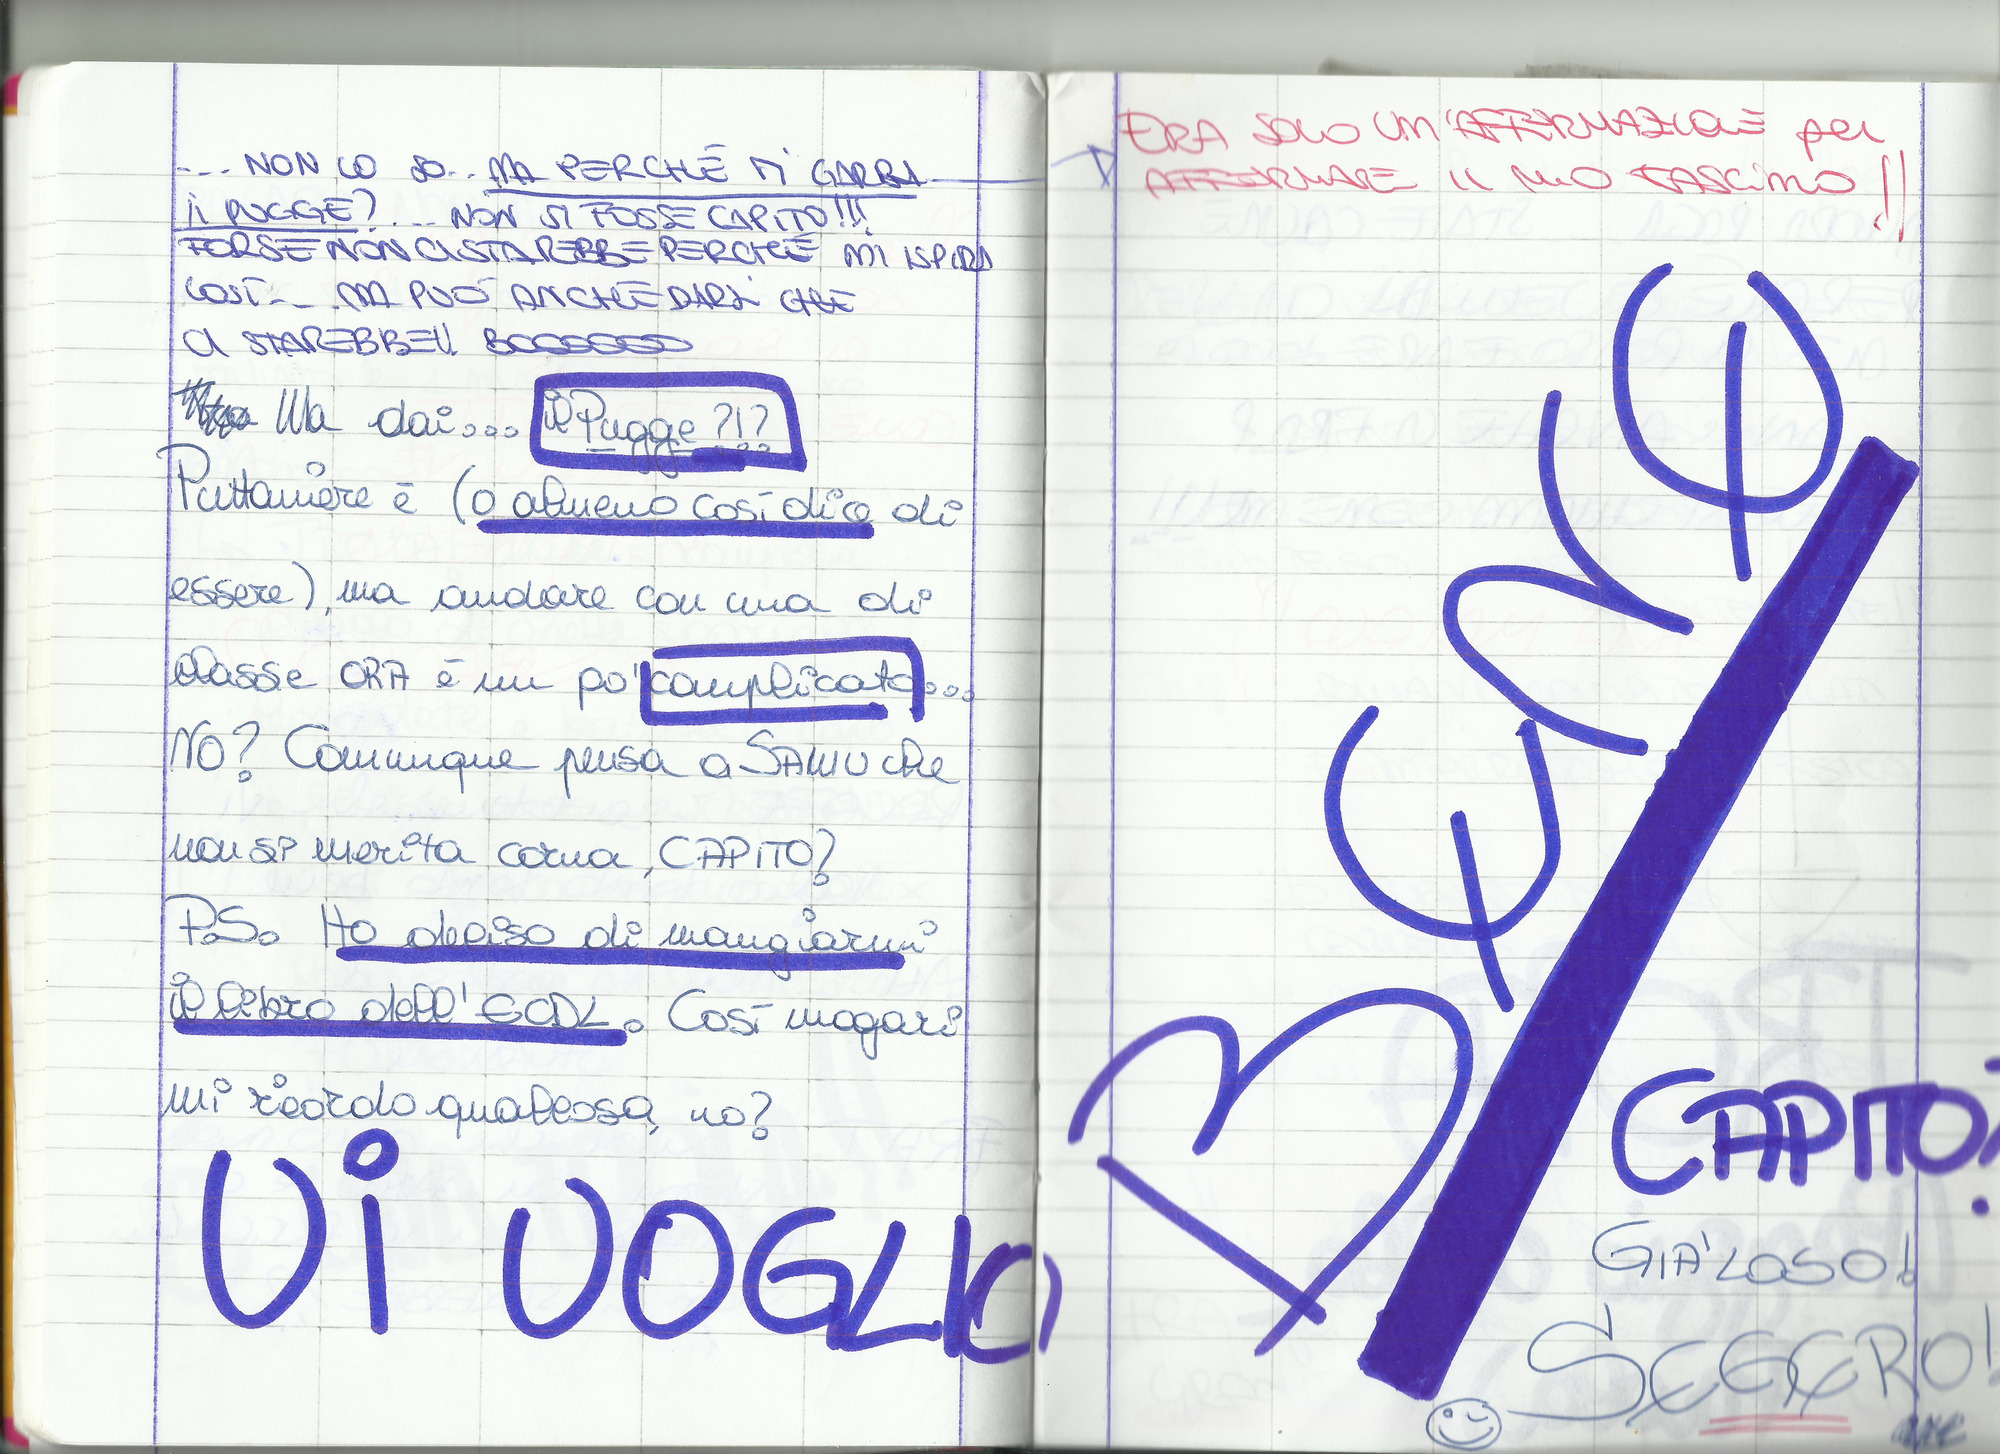 ... NON LO SO... MA PERCHÉ TI GARBA
il PUGGE? ... NON SI FOSSE CAPITO!!!
FORSE NON CI STAREBBE PERCHÉ MI ISPIRA
COSÌ... MA PUÒ ANCHE DARSI CHE
CI STAREBBE!! BOOOOOO
Ma dai... il Pugge?!?
Puttaniere è (o almeno così dice di
essere), ma andare con una di
classe ORA è un po' complicato...
NO? Comunque pensa a SAMU che
non si merita corna, CAPITO?
P.S. Ho deciso di mangiarmi
il libro dell'ECDL. Così magari
mi ricordo qualcosa, no?
Vi VOGLIO
ERA SOLO UN'AFFERMAZIONE per
AFFERMARE il MIO FASCINO!!
BENE
CAPITO?
GIÀ LO SO!
SCEEERO!